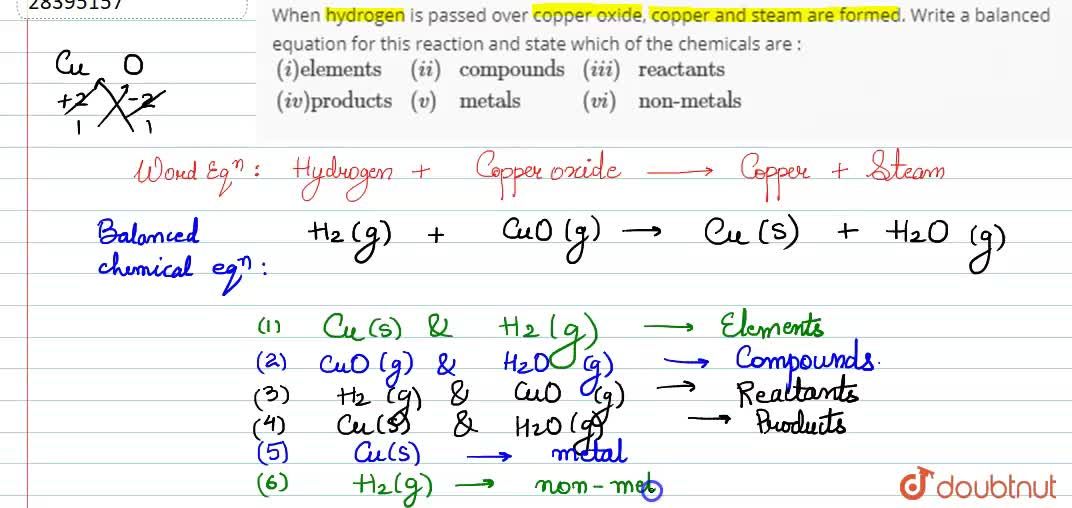 28395157
When hydrogen is passed over copper oxide, copper and steam are formed. Write a balanced
equation for this reaction and state which of the chemicals are :
(i)elements (ii) compounds (iii) reactants
(iv)products (v) metals (vi) non-metals
Cu O
+2 -2
1 1
Word Eqⁿ : Hydrogen + Copper oxide → Copper + Steam
Balanced H2(g) + CuO(g) → Cu(s) + H2O (g)
chemical eqⁿ :
(1) Cu(s) & H2(g) → Elements
(2) CuO(g) & H2O (g) → Compounds.
(3) H2 (g) & CuO (g) → Reactants
(4) Cu(s) & H2O(g) → Products
(5) Cu(s) → metal
(6) H2(g) → non-met
doubtnut